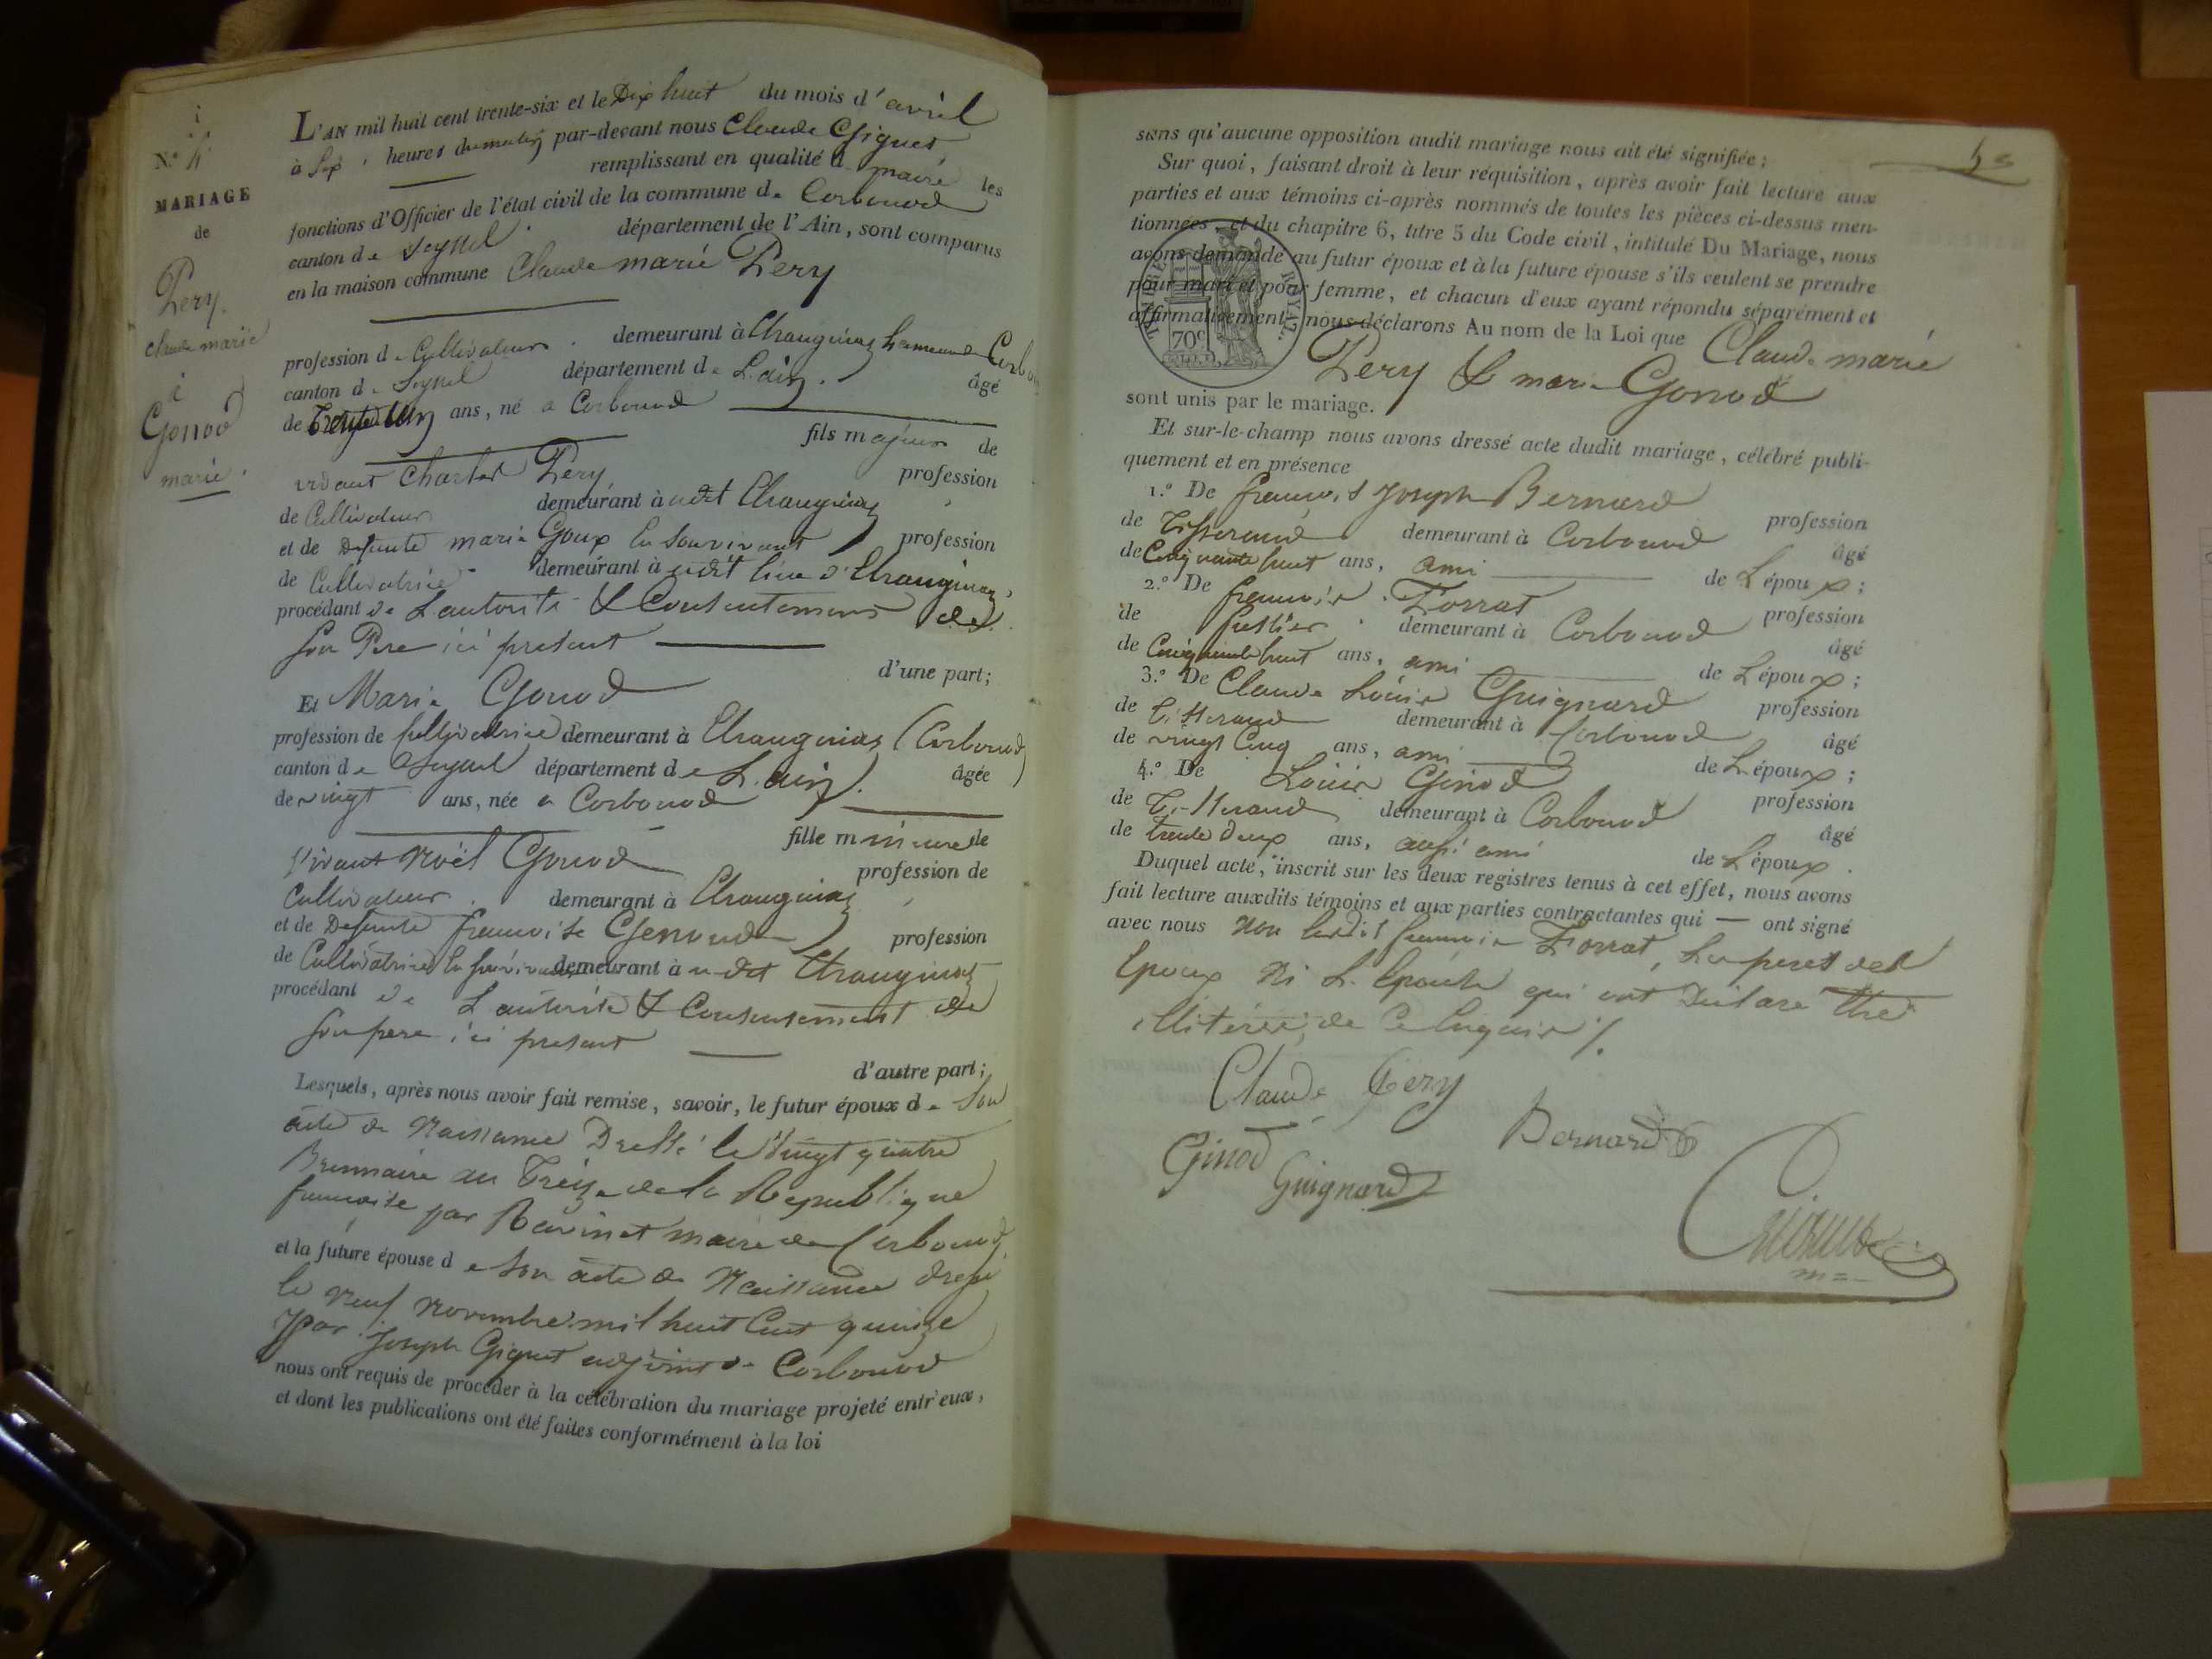 N.° 4
MARIAGE
de
Pery
claude marie
&
Gonod
marie
L'AN mil huit cent trente-six et le Dix huit du mois d'avril
à Six heures du matin par-devant nous Claude Giguet
remplissant en qualité de maire les
fonctions d'Officier de l'état civil de la commune de Corbonod
canton de Seyssel département de l'Ain, sont comparus
en la maison commune Claude marie Pery
profession de Cultivateur demeurant à Etranginaz hameau de Corbo
canton de Seyssel département de L'ain. âgé
de ans, né a Corbonod
fils majeur de
vivant Charles Pery profession
de Cultivateur demeurant à udit Etranginaz
et de Defunte marie Goux la Souvivant profession
de Cultivatrice demeurant à udit lieu d'Etranginaz,
procédant de L'autorité & Consentement de
Son Pere ici present
d'une part;
Et Marie Gonod
profession de Cultivatrice demeurant à Etranginaz (Corbonod)
canton de Seyssel département de L'ain). âgée
de vingt ans, née a Corbonod
fille mineure de
vivant Noël Gonod profession de
Cultivateur demeurant à Etranginaz
et de Defunte francoise Genoud profession
de Cultivatrice la Survivante demeurant à udit Etranginaz
procédant de L'autorité & Consentement de
Son pere ici present
d'autre part;
Lesquels, après nous avoir fait remise, savoir, le futur époux de Son
acte de Naissance Dressé le Vingt quatre
Brumaire an Treize de la Republique
francaise par Ravinet maire de Corbonod,
et la future épouse de Son acte de Naissance dressé
le neuf novembre mil huit Cent quinze
par Joseph Giguet adjoint de Corbonod
nous ont requis de procéder à la célébration du mariage projeté entr'eux,
et dont les publications ont été faites conformément à la loi
sans qu'aucune opposition audit mariage nous ait été signifiée;
Sur quoi, faisant droit à leur réquisition, après avoir fait lecture aux
parties et aux témoins ci-après nommés de toutes les pièces ci-dessus men-
tionnées, et du chapitre 6, titre 5 du Code civil, intitulé Du Mariage, nous
avons demandé au futur époux et à la future épouse s'ils veulent se prendre
pour mari et pour femme, et chacun d'eux ayant répondu séparément et
affirmativement, nous déclarons Au nom de la Loi que Claude marie
Pery & marie Gonod
TIMBRE ROYAL.
70c
sont unis par le mariage.
Et sur-le-champ nous avons dressé acte dudit mariage, célébré publi-
quement et en présence
1.° De francois Joseph Bernard profession
de Tisserand demeurant à Corbonod âgé
de Cinquante huit ans, ami de L'époux;
2.° De francois Forrat profession
de demeurant à Corbonod âgé
de Cinquante huit ans, ami de L'époux;
3.° De Claude Louis Guignard profession
de Tisserand demeurant à Corbonod âgé
de vingt Cinq ans, ami de L'époux;
4.° De Louis Ginod profession
de Tisserand demeurant à Corbonod âgé
de trente deux ans, aussi ami de L'époux.
Duquel acte, inscrit sur les deux registres tenus à cet effet, nous avons
fait lecture auxdits témoins et aux parties contractantes qui — ont signé
avec nous Non ledit francois Forrat, Les peres des
Epoux Ni L'Epouse qui ont Declaré Etre
illitéré, de Ce Enquis /.
Claude Pery
Bernard
Ginod
Guignard